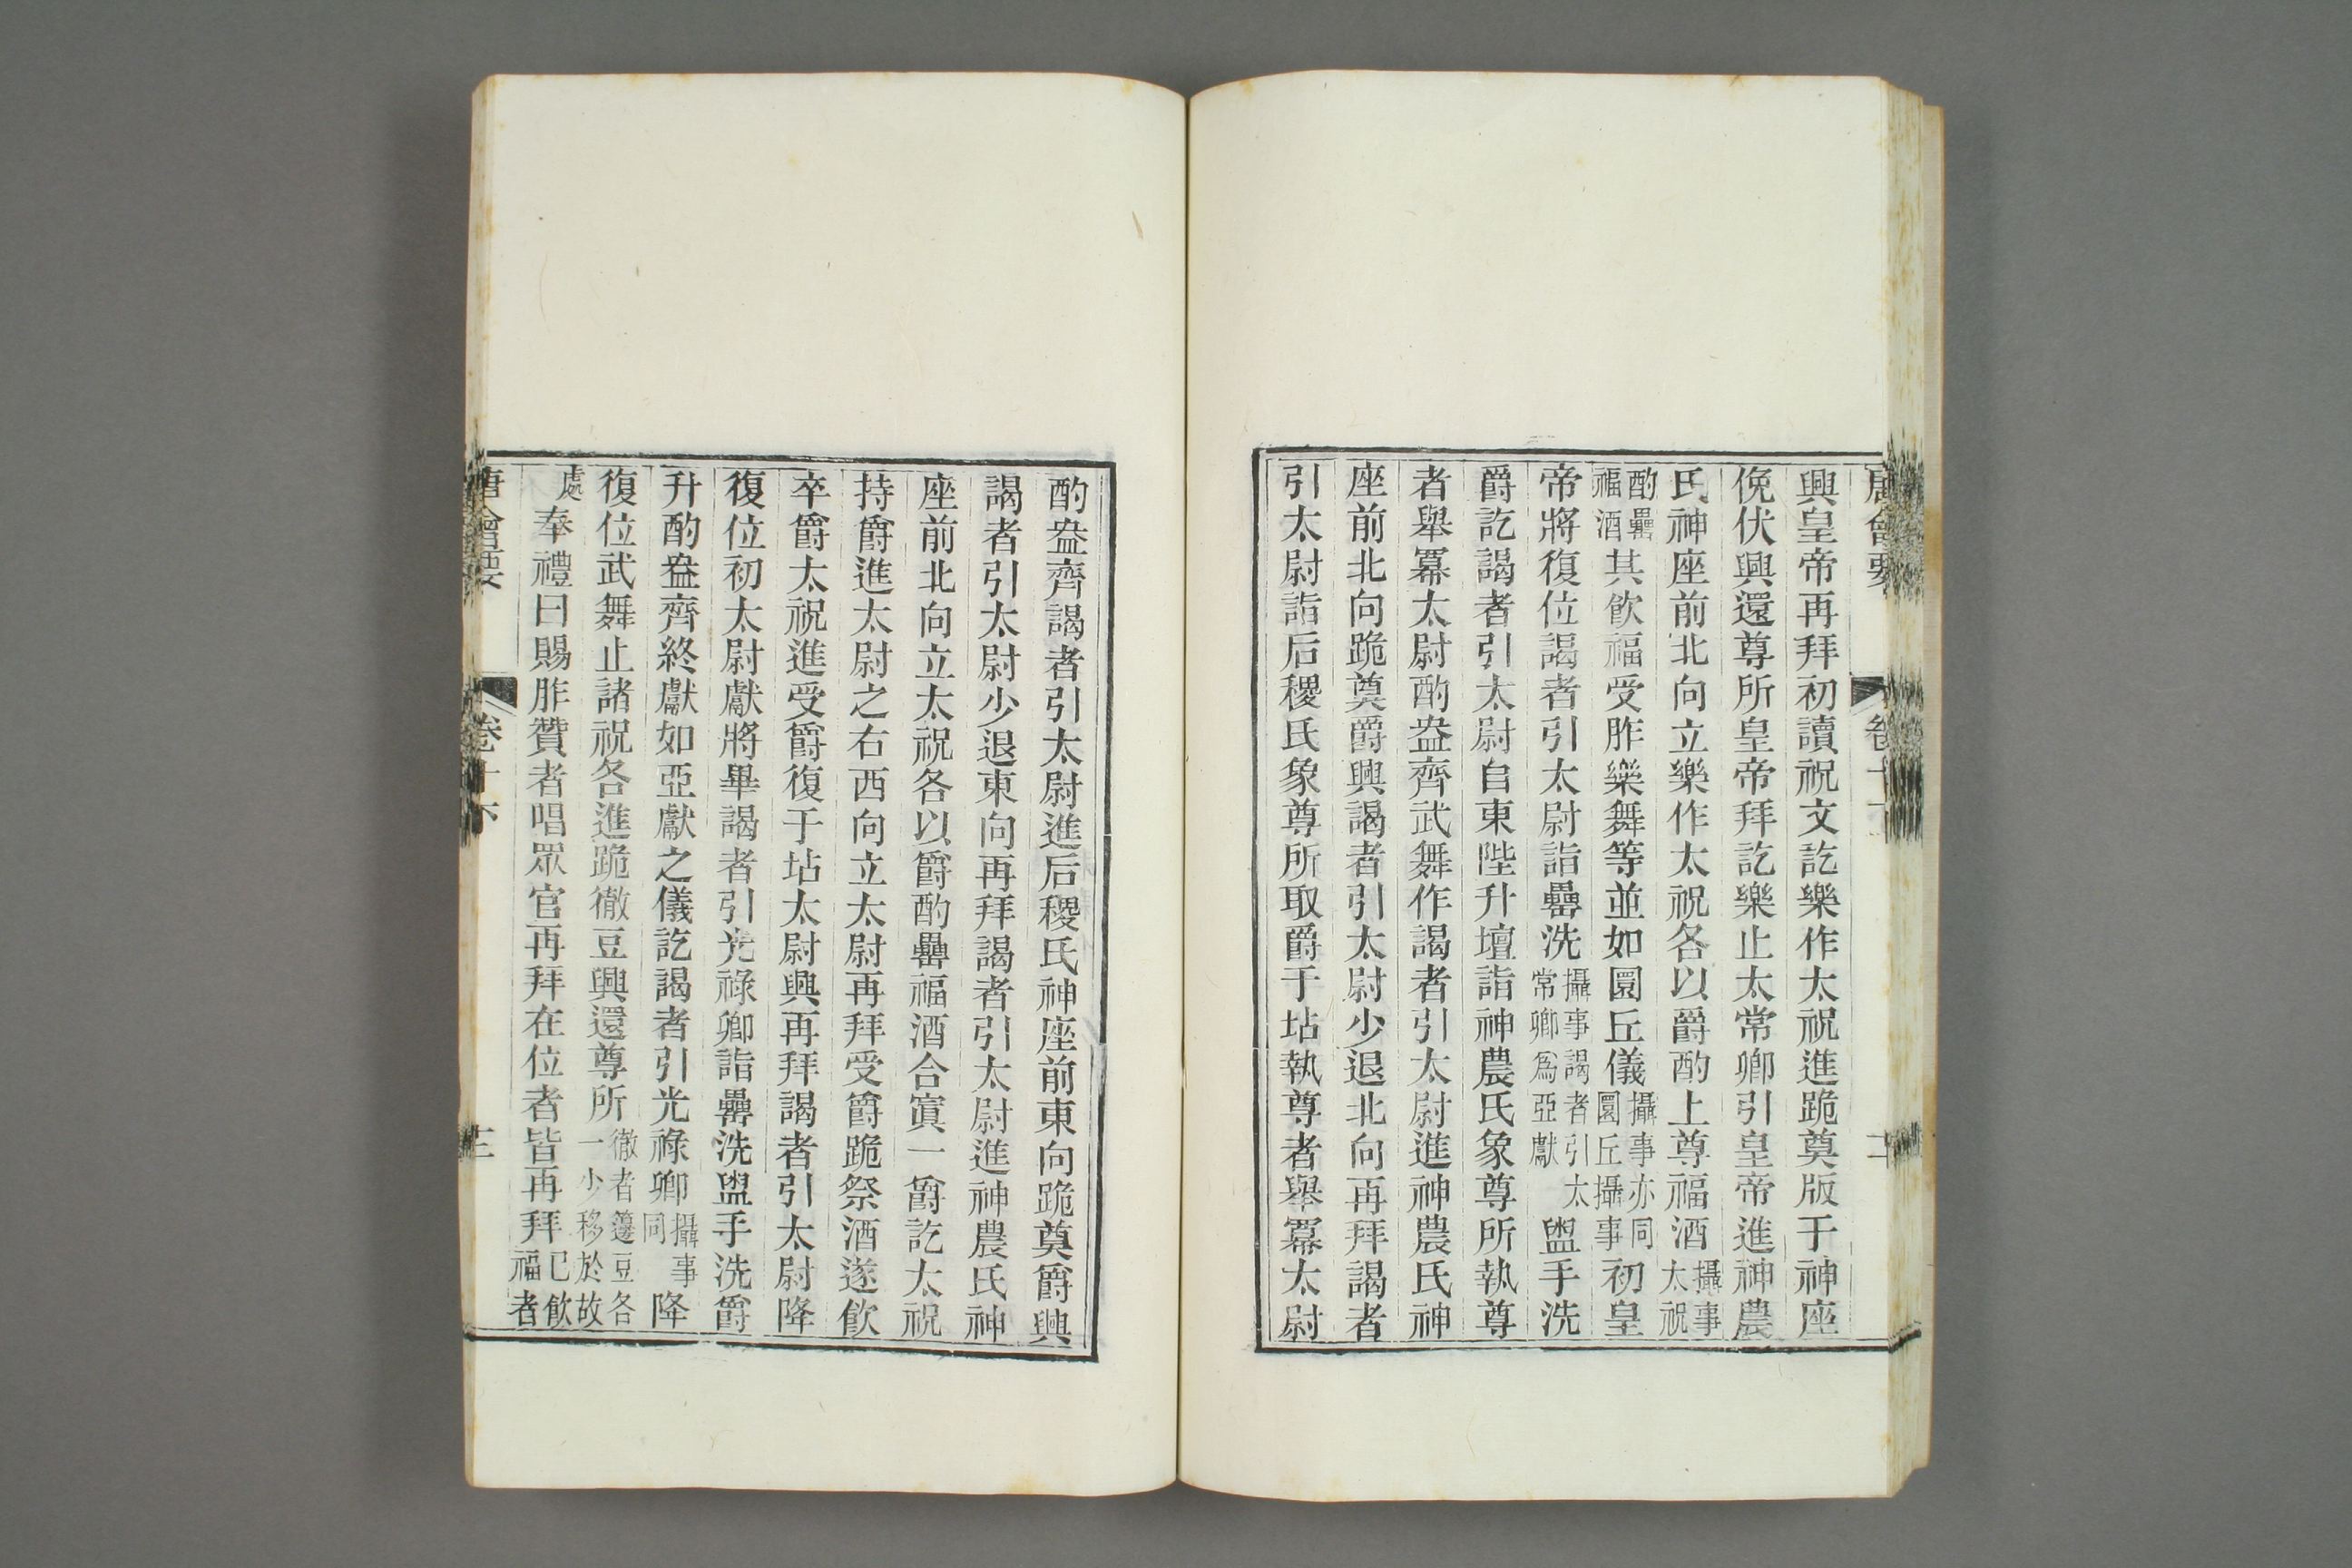 唐會要 卷十
興皇帝再拜初讀祝文訖樂作太祝進跪奠版于神座
俛伏興還尊所皇帝拜訖樂止太常卿引皇帝進神農
氏神座前北向立樂作太祝各以爵酌上尊福酒攝事太祝
酌罍福酒其飲福受胙樂舞等並如圜丘儀攝事亦同圜丘攝事初皇
帝將復位謁者引太尉詣罍洗攝事謁者引太常卿爲亞獻盥手洗
爵訖謁者引太尉自東陛升壇詣神農氏象尊所執尊
者舉羃太尉酌盎齊武舞作謁者引太尉進神農氏神
座前北向跪奠爵興謁者引太尉少退北向再拜謁者
引太尉詣后稷氏象尊所取爵于坫執尊者舉羃太尉
酌盎齊謁者引太尉進后稷氏神座前東向跪奠爵興
謁者引太尉少退東向再拜謁者引太尉進神農氏神
座前北向立太祝各以爵酌罍福酒合寘一爵訖太祝
持爵進太尉之右西向立太尉再拜受爵跪祭酒遂飲
卒爵太祝進受爵復于坫太尉興再拜謁者引太尉降
復位初太尉獻將畢謁者引光祿卿詣罍洗盥手洗爵
升酌盎齊終獻如亞獻之儀訖謁者引光祿卿攝事同降
復位武舞止諸祝各進跪徹豆興還尊所徹者籩豆各一少移於故
處奉禮曰賜胙贊者唱眾官再拜在位者皆再拜已飲福者
唐會要 卷十六